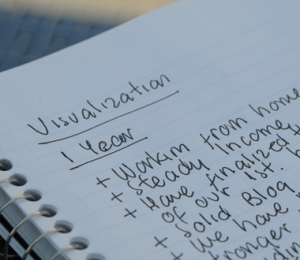 Visualization
1 Year
+ Workin from home
+ Steady Income
+ Have finalized
of our 1st.
+ Solid Blog
+ We have